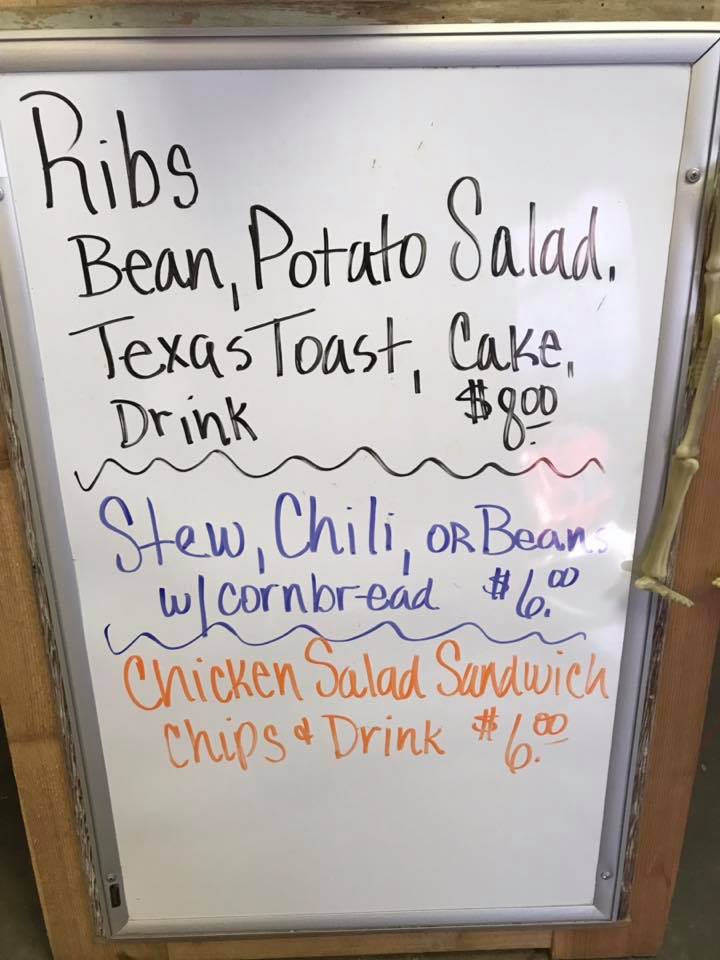 Ribs
Bean, Potato Salad,
Texas Toast, Cake,
Drink $8.00
Stew, Chili, OR Beans
w/cornbread $6.00
Chicken Salad Sandwich
Chips & Drink $6.00